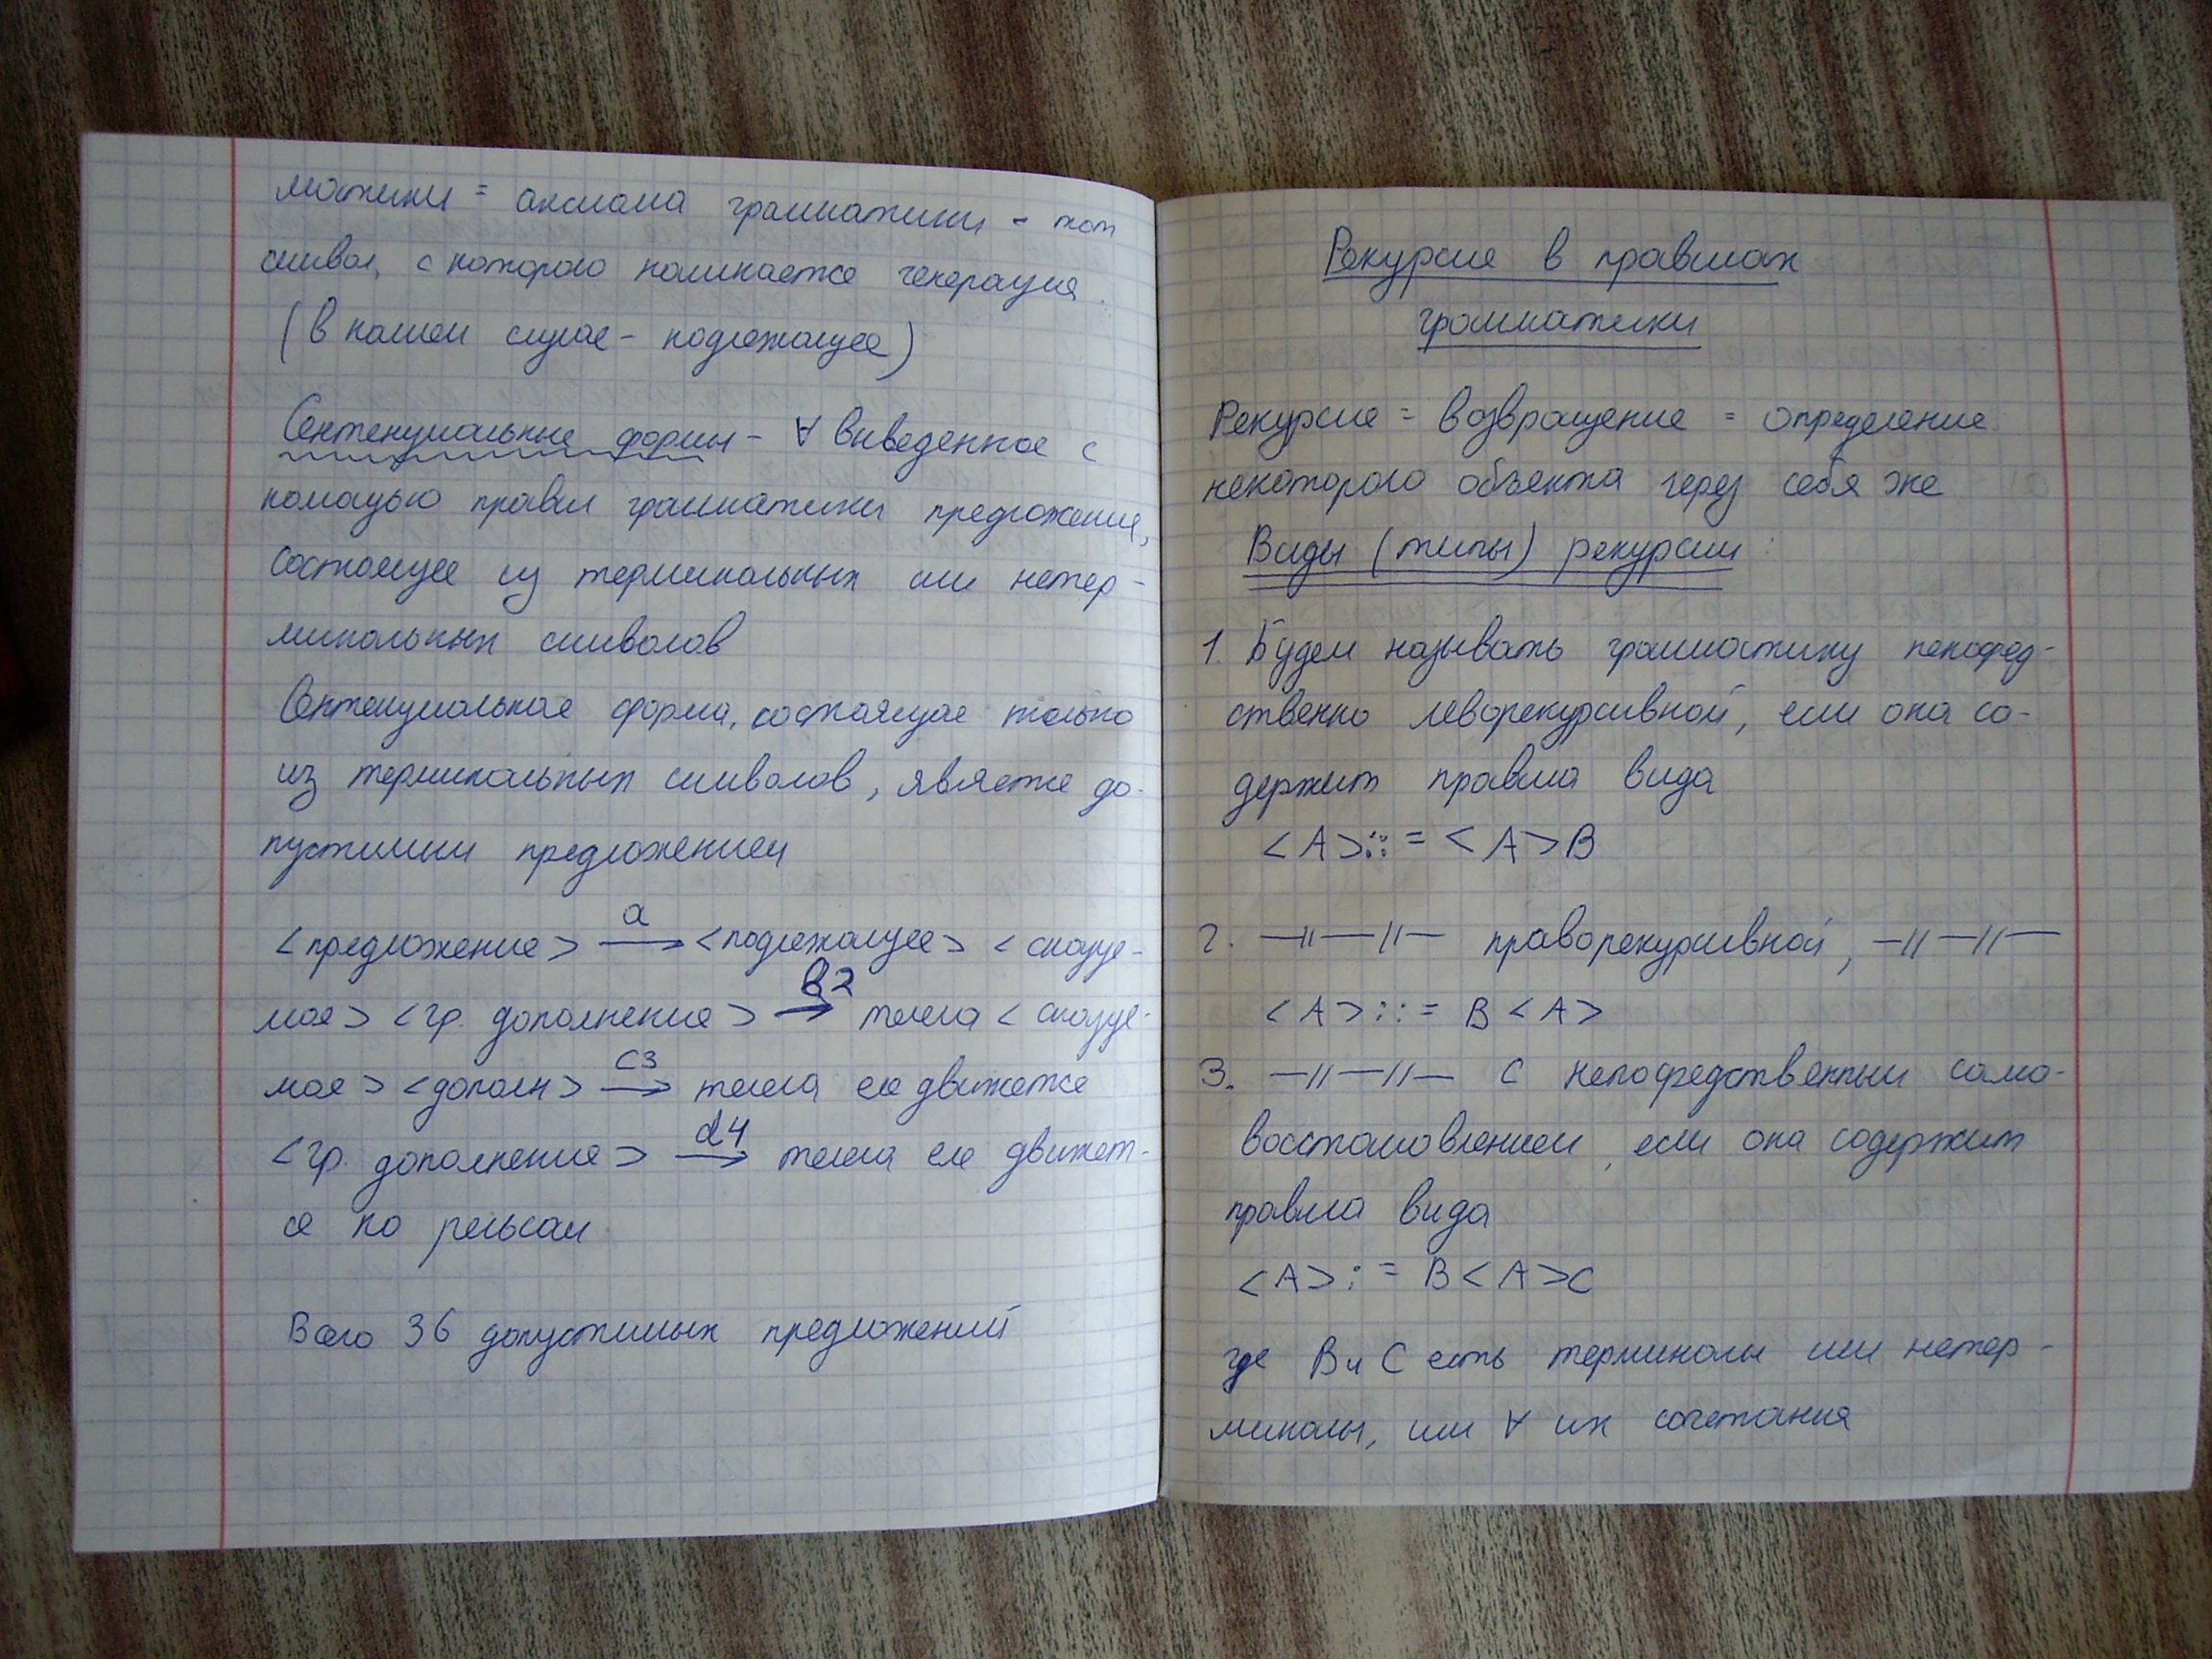 матики = аксиома грамматики - тот
символ, с которого начинается генерация.
(в нашем случае - подлежащее)
Сентенциальные формы - ∀ выведенное с
помощью правил грамматики предложение,
состоящее из терминальных или нетер-
минальных символов
Сентенциальная форма, состоящая только
из терминальных символов, является до-
пустимым предложением
a
<предложение> → <подлежащее> <сказуе-
b2
мое> <гр. дополнение> → телега <сказуе-
c3
мое> <дополн> → телега еле движется
d4
<гр. дополнение> → телега еле движет-
ся по рельсам
Всего 36 допустимых предложений
Рекурсия в правилах
грамматики
Рекурсия = возвращение = определение
некоторого объекта через себя же
Виды (типы) рекурсии:
1. Будем называть грамматику непосред-
ственно леворекурсивной, если она со-
держит правила вида
<A>::= <A>B
2. —//—//— праворекурсивной, —//—//—
<A>::= B<A>
3. —//—//— с непосредственным само-
восстановлением, если она содержит
правила вида
<A>:= B<A>C
где B и C есть терминалы или нетер-
миналы, или ∀ их сочетания